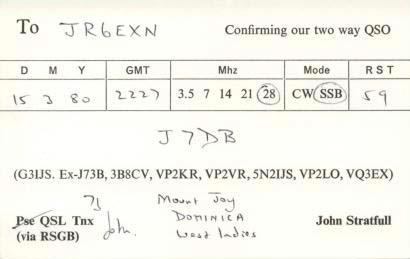 To JR6EXN Confirming our two way QSO
D M Y GMT Mhz Mode R S T
15 3 80 2227 3.5 7 14 21 28 CW SSB 59
J7DB
(G3IJS. Ex-J73B, 3B8CV, VP2KR, VP2VR, 5N2IJS, VP2LO, VQ3EX)
73 Mount Joy
Pse QSL Tnx John. DOMINICA John Stratfull
(via RSGB) West Indies